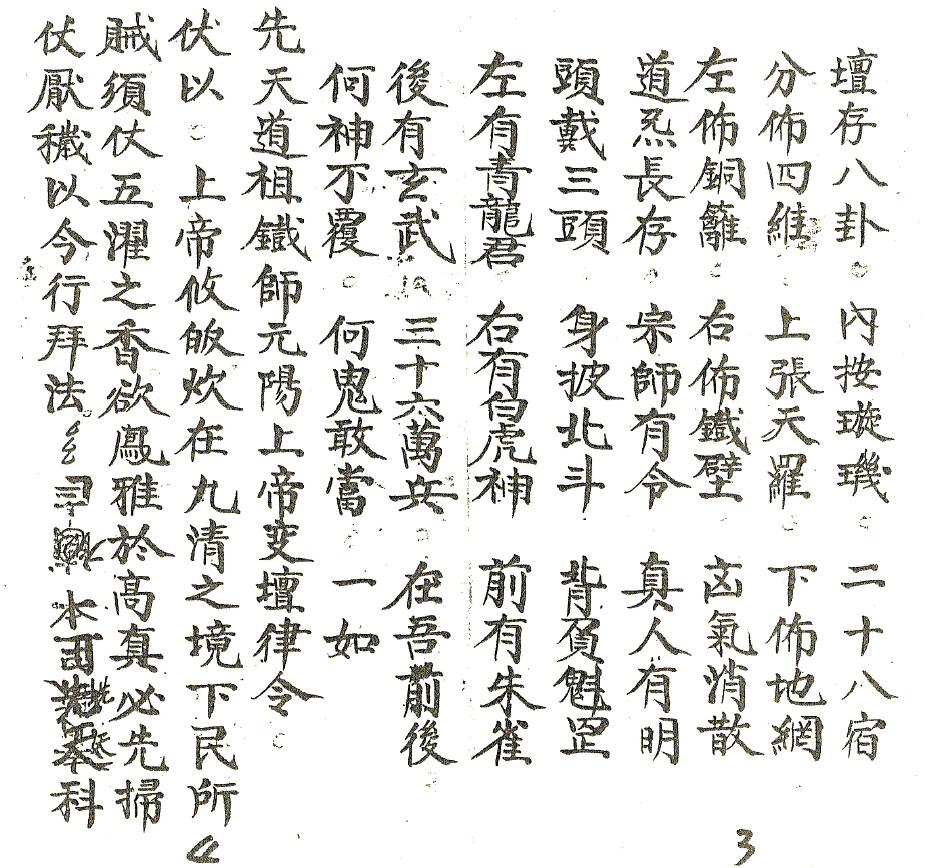 壇存八卦 內按璇璣 二十八宿
分佈四維 上張天羅 下佈地網
左佈銅籬 右佈鐵壁 凶氣消散
道炁長存 宗師有令 真人有明
頭戴三頭 身披北斗 背負魁罡
左有青龍君 右有白虎神 前有朱雀
後有玄武 三十六萬兵 在吾前後
何神不覆 何鬼敢當 一如
先天道祖鐵師元陽上帝変壇律令
伏以 上帝攸皈炊在九清之境下民所
贼須仗五濯之香欲鳬雅於高真必先掃
仗厭穢以今行拜法 本 科
3
4